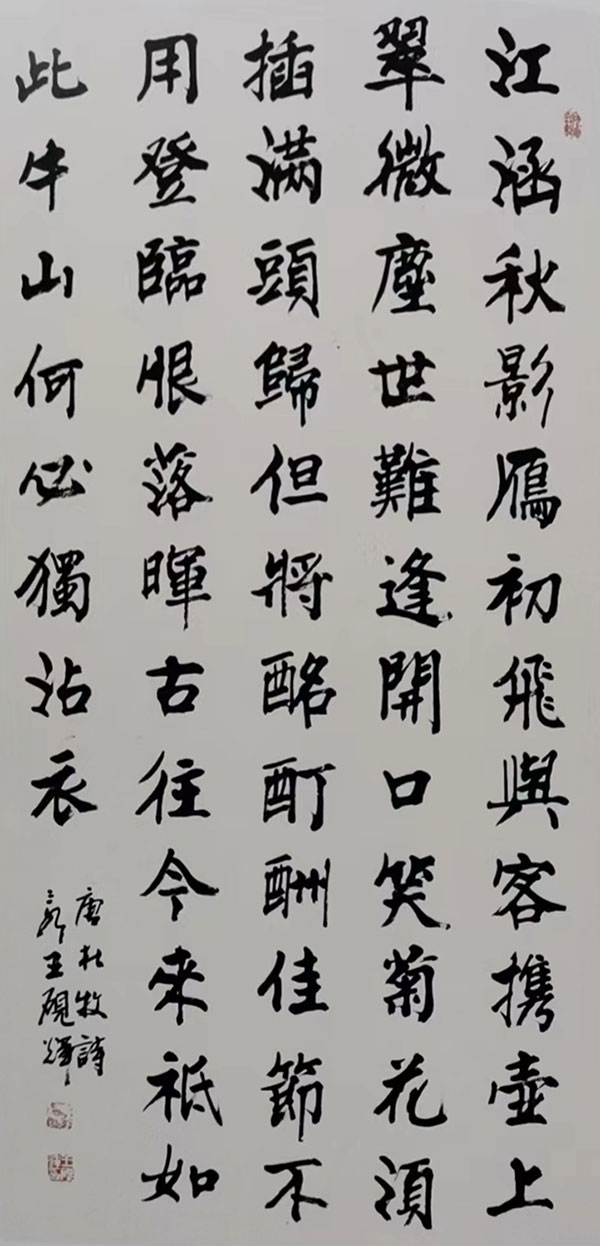 江涵秋影鴈初飛與客携壺上
翠微塵世難逢開口笑菊花須
插滿頭歸但將酩酊酬佳節不
用登臨恨落暉古往今來祗如
此牛山何必獨沾衣
唐杜牧詩
王硯輝